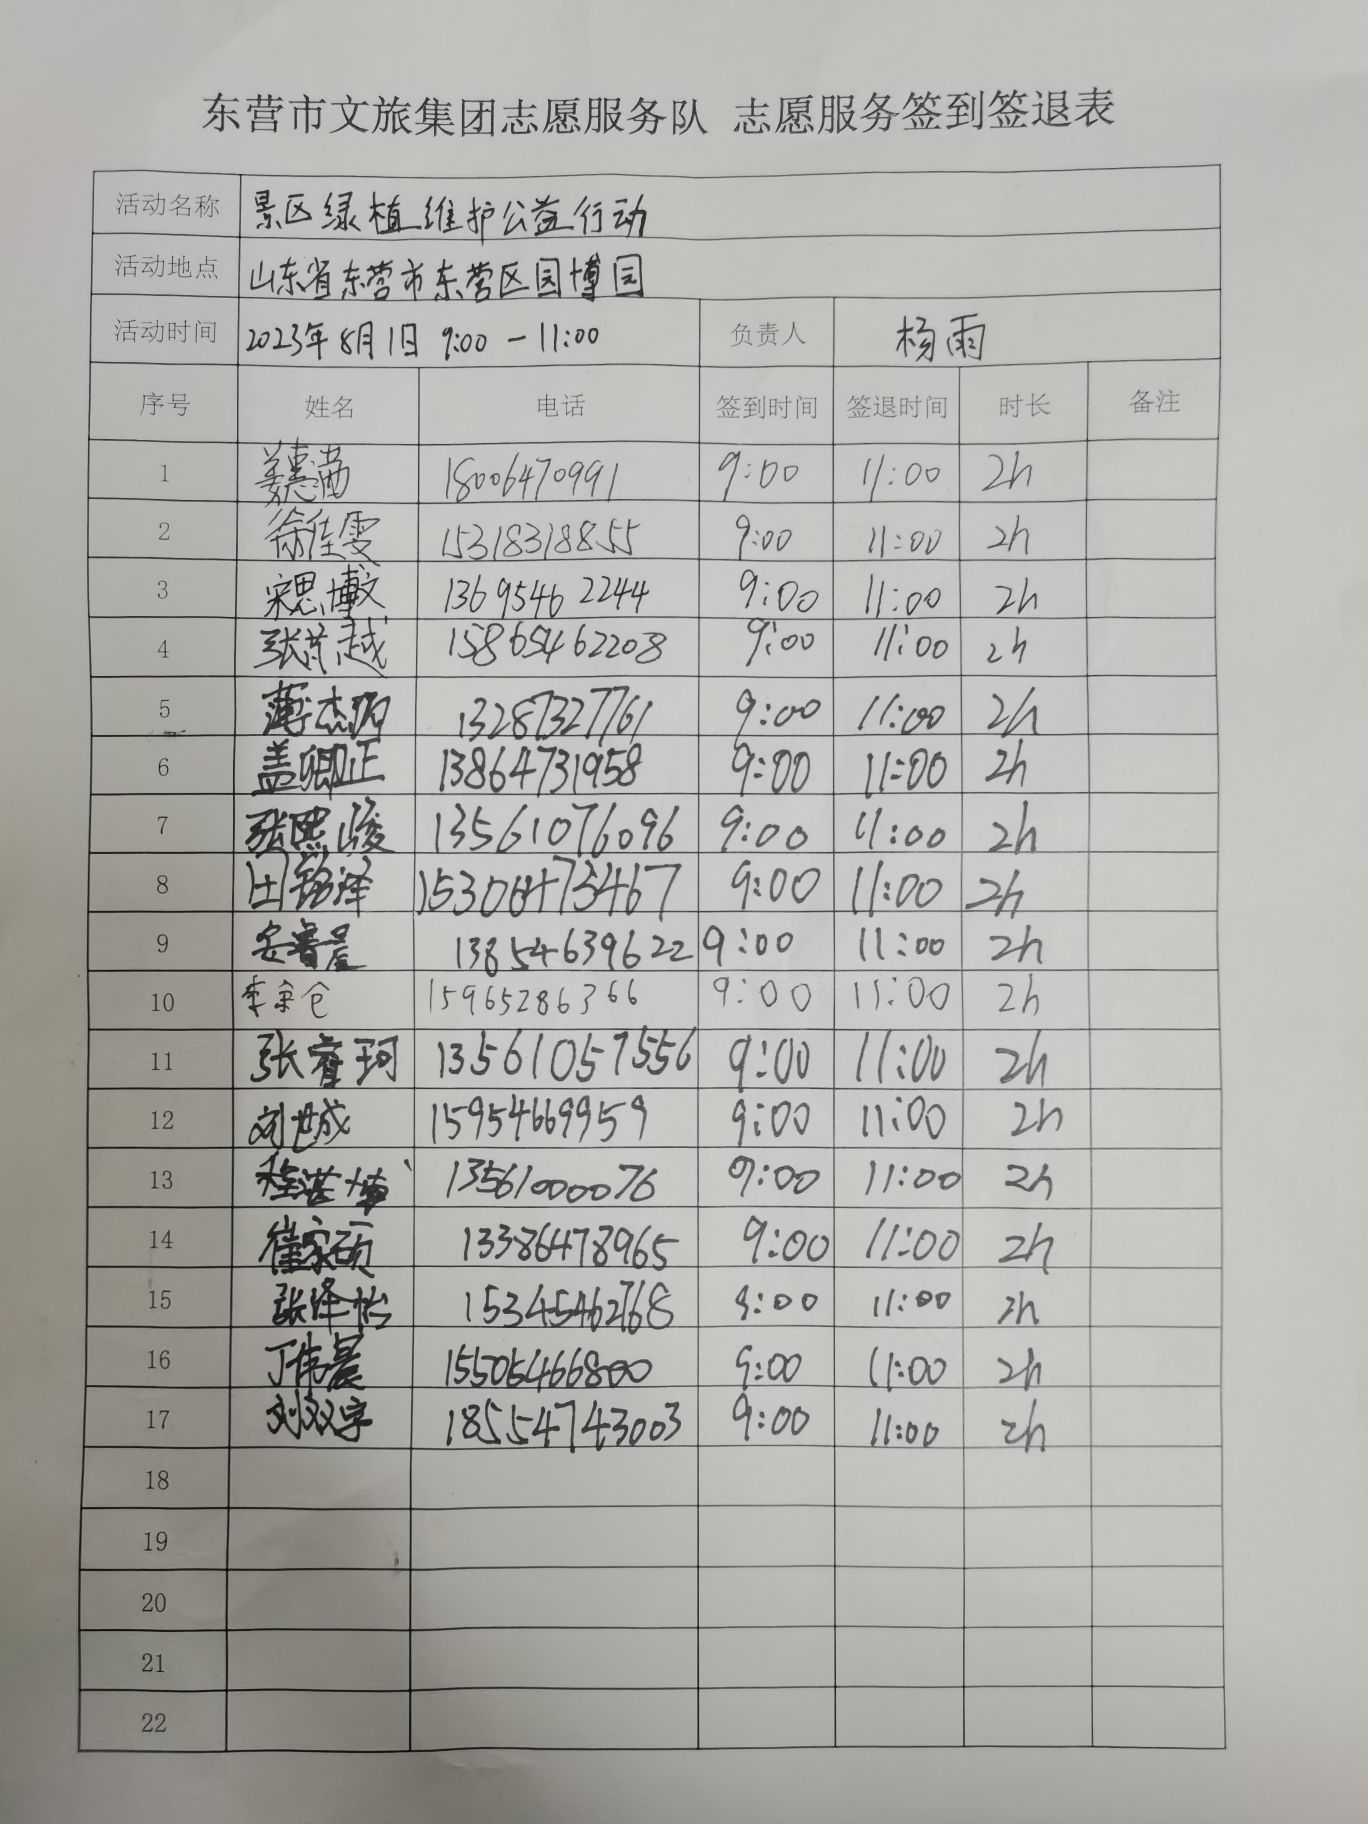 东营市文旅集团志愿服务队 志愿服务签到签退表
活动名称 景区绿植维护公益行动
活动地点 山东省东营市东营区园博园
活动时间 2023年8月1日 9:00-11:00 负责人 杨雨
序号 姓名 电话 签到时间 签退时间 时长 备注
1 18006470991 9:00 11:00 2h
2 徐佳雯 15318318855 9:00 11:00 2h
3 宋思博文 13695462244 9:00 11:00 2h
4 15865462208 9:00 11:00 2h
5 13287327761 9:00 11:00 2h
6 盖卿正 13864731958 9:00 11:00 2h
7 张熙峻 13561076096 9:00 11:00 2h
8 田铭泽 9:00 11:00 2h
9 安睿晨 13854639622 9:00 11:00 2h
10 15965286366 9:00 11:00 2h
11 张睿珂 13561057556 9:00 11:00 2h
12 刘世成 15954669959 9:00 11:00 2h
13 13561000076 9:00 11:00 2h
14 崔家硕 13386478965 9:00 11:00 2h
15 张泽怡 15345462768 9:00 11:00 2h
16 丁伟晨 15505466800 9:00 11:00 2h
17 18554743003 9:00 11:00 2h
18
19
20
21
22